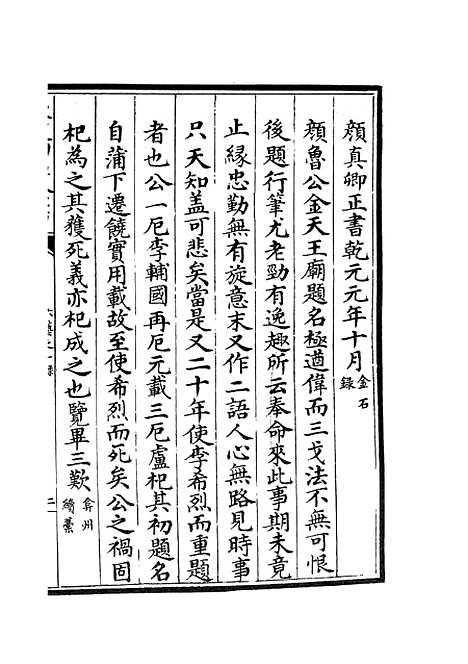 顔真卿正書乾元元年十月金石録
顔魯公金天王廟題名極遒偉而三戈法不無可恨
後題行筆尤老勁有逸趣所云奉命來此事期未竟
止縁忠勤無有旋意末又作二語人心無路見時事
只天知盖可悲矣當是又二十年使李希烈而重題
者也公一厄李輔國再厄元載三厄盧杞其初題名
自蒲下遷饒實用載故至使希烈而死矣公之禍固
杞為之其獲死義亦杞成之也覽畢三歎弇州續藁
六藝之一録